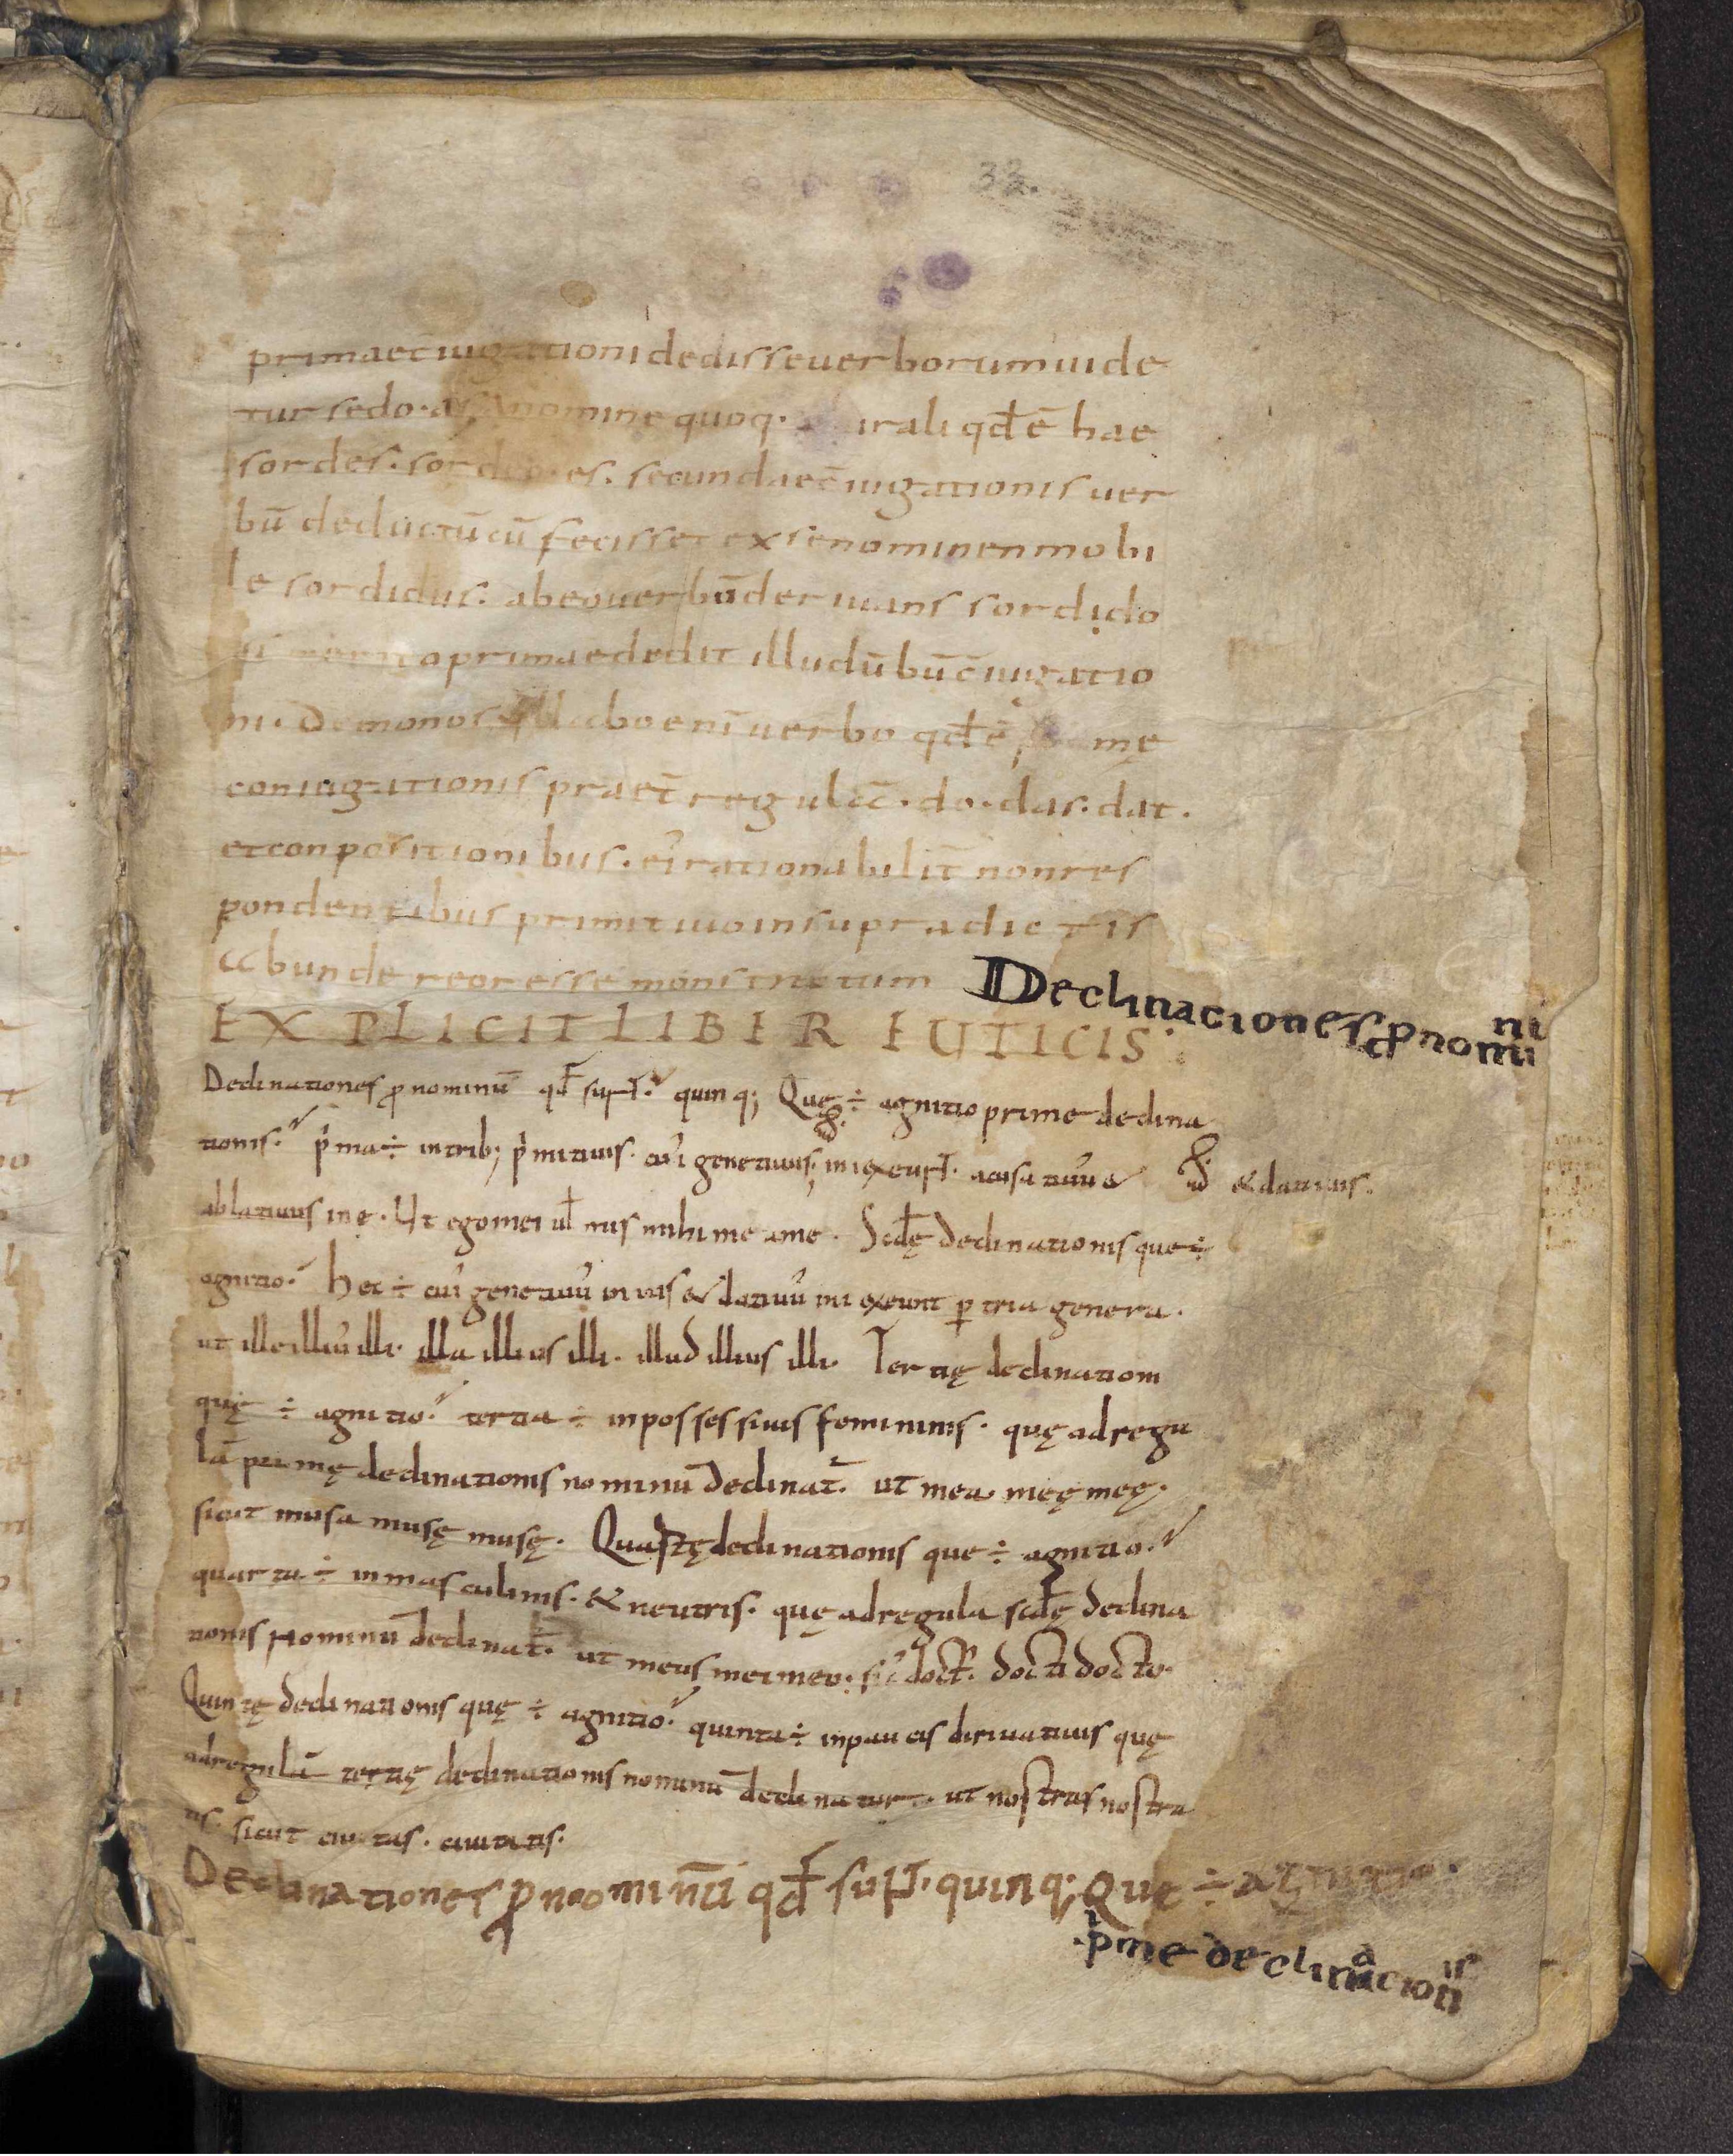 primae c̄iugationi dedisse uerborum uide
tur sedo· as· A nomine quoq· irali qd̄ ē hae
sordes· sordeo· es· secundae c̄iugationis uer
bū deductū cū fecisset ex se nomine nmobi
le sordidus· ab eo uerbū deriuans sordido
primae dedit illud ūbū c̄iugatio
ni· Domo nos· Ab eni uerbo qd̄ ē mę
coniugationis praet̄ regulā· do· das· dat·
et conpositionibus· ei rationabilit̄ non res
pondentibus primitiuo in supradictis
abunde reor esse monstratum
Declinaciones ꝓnomini
EXPLICIT LIBER EUTICIS·
Declinationes ꝓnominū qd̄ sunt· quinq; Quę ÷ agnitio prime declina
tionis· p̍ma ÷ in trib; p̍mitiuis· cui᾽ genetiuus in i exeunt· acusatiuu &
& datiuus·
ablatiuus in e· Ut ego mei ul̄ mis mihi me a me· Scd̄ę declinationis que ÷
agnitio· hec ÷ cui᾽ genetiuu᾽ in ius & datiuu᾽ in i exeunt ꝑ tria genera·
ut ille illiu᾽ illi· illa illius illi· illud illius illi· Tertię declinationi
quę ÷ agnitio· tertia ÷ in possessiuis femininis· quę ad regu
lā primę declinationis nominū declinat̄· ut mea meę meę·
sicut musa musę musę· Quartę declinationis que ÷ agnitio·
quarta ÷ in masculinis· & neutris· quę ad regula scd̄ę declina
tionis nominū declinat̄· ut meus mei meo· sic᾽ doct᾽· docti docto·
Quintę declinationis quę ÷ agnitio· quinta ÷ in paucis diriuatiuis quę
ad regulā tertię declinationis nominū declinatur· ut nostras nostra
tis· sicut ciuitas· ciuitatis·
Declinationes ꝓneominūi qd̄ sunt· quinq; Que ÷ agnitio·
·p̍me declinacionis